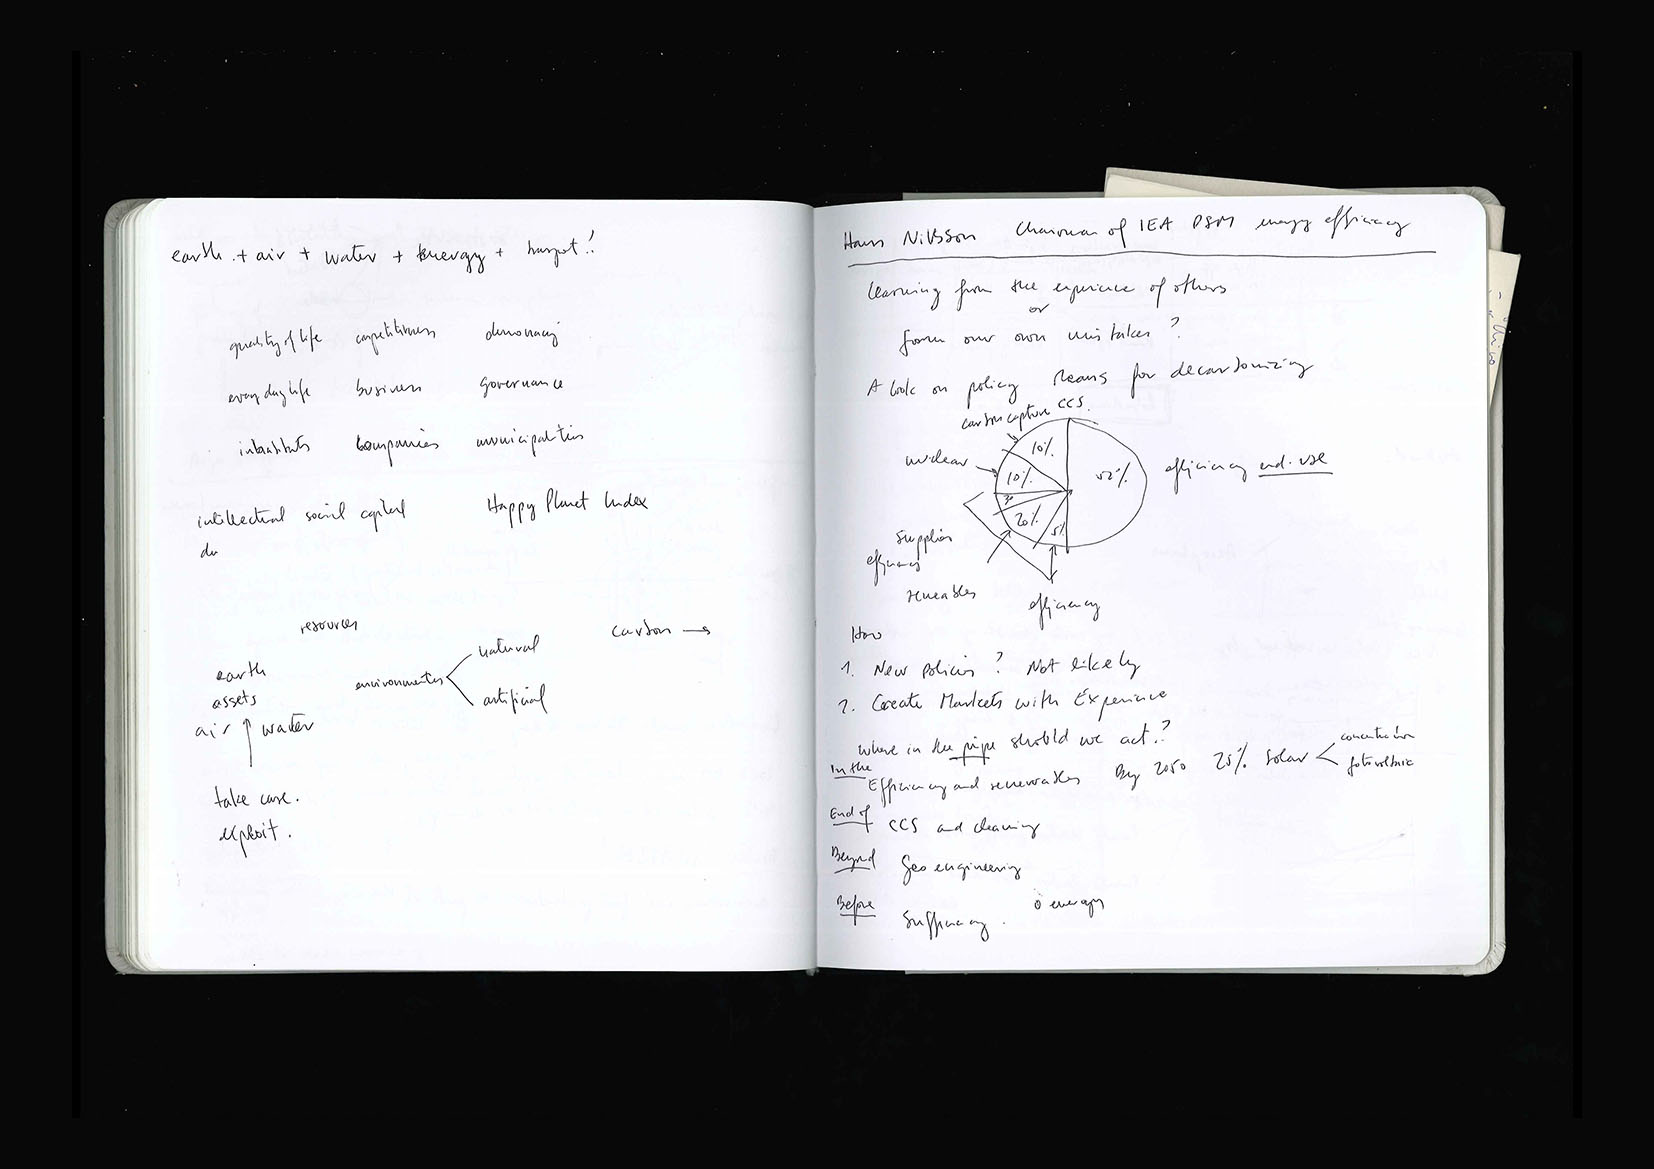 earth + air + water + energy +
quality of life competitiveness democracy
everyday life business governance
inhabitants companies municipalities
intellectual social capital Happy Planet Index
du
resources
carbon →
natural
earth
environmentes
assets
artificial
air ↑ water
take care.
exploit.
Hans Nilsson Chairman of IEA DSM energy efficiency
Learning from the experience of others
or
from our own mistakes?
A look on policy Means for decarbonizing
carbon capture CCS.
10%
nuclear
52% efficiency end.use
10%
20%
5%
Supplies
efficiency
reneables
efficiency
How
1. New policies? Not likely
2. Create Markets with Experience
where in the pipe should we act?
In the Efficiency and renewables By 2050 25% Solar
concentration
fotovoltaic
End of CCS and cleaning
Beyond Geo engineering
Before Sufficiency. 0 energy